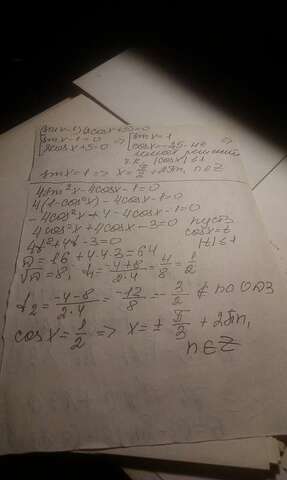 (sin x-1)(4cos x+5)=0
[sin x-1=0 => [sin x=1
[4cos x+5=0
нет решений
т.к. |cos x| ≤ 1
sin x=1 => x= π/2 + 2πn, n∈Z
4sin²x-4cos x-1=0
4(1-cos²x)-4cos x-1=0
-4cos²x+4-4cos x-1=0
4cos²x+4cos x-3=0 пусть
cos x=t
4t²+4t-3=0 |t|≤1
D=16+4·4·3=64
√D=8, t₁= (-4+8)/(2·4) = 4/8 = 1/2
t₂= (-4-8)/(2·4) = -12/8 = -3/2 ∉ по ОДЗ
cos x= 1/2 => x=± π/3 + 2πn,
n∈Z